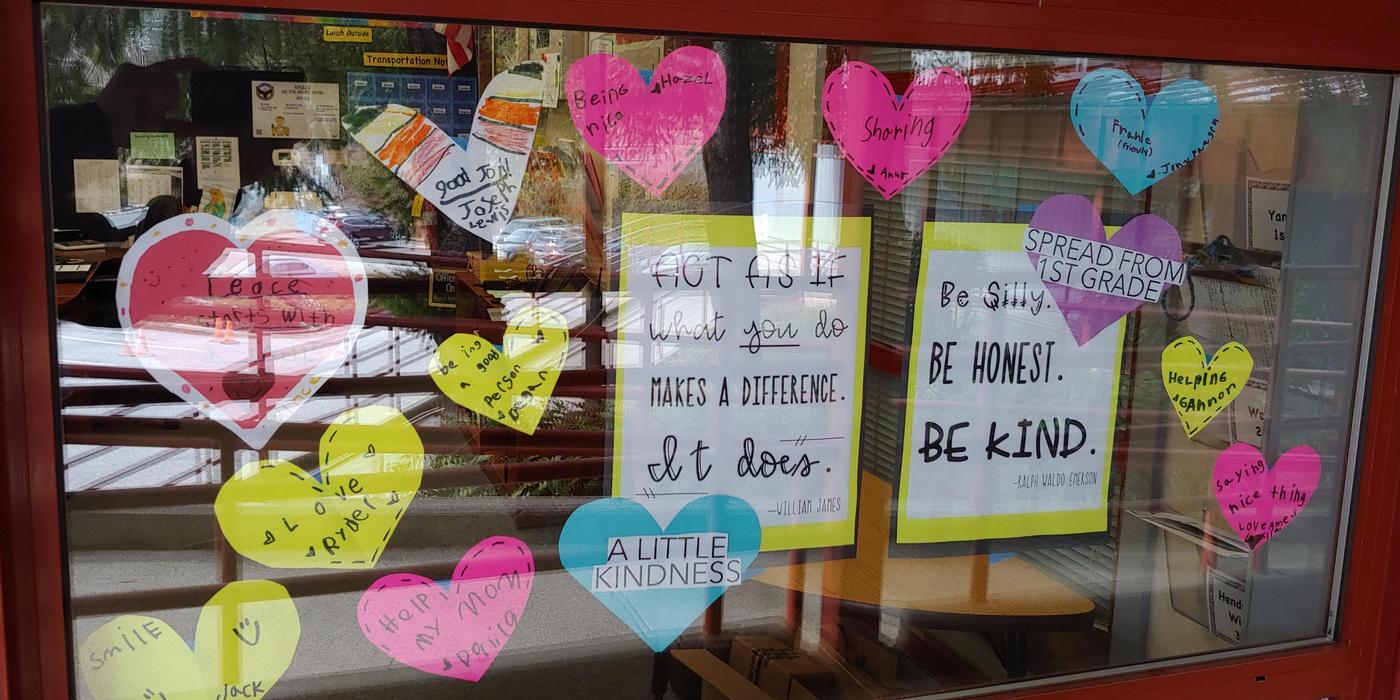 Lunch Outside
Transportation Not
good Job!
Joseph
Lewis
Being
nice
Hazel
Sharing
Annr
(friendly)
Peace
starts with
me
being
a good
Person
Love
Ryder
smile
Jack
Help
my Mom
ACT AS IF
what you do
MAKES A DIFFERENCE.
It does.
—WILLIAM JAMES
A LITTLE
KINDNESS
Be Silly.
BE HONEST.
BE KIND.
-RALPH WALDO EMERSON
SPREAD FROM
1ST GRADE
HELPING
saying
nice thing
Love
Yar
1s
We
2
Hend
Wi
3